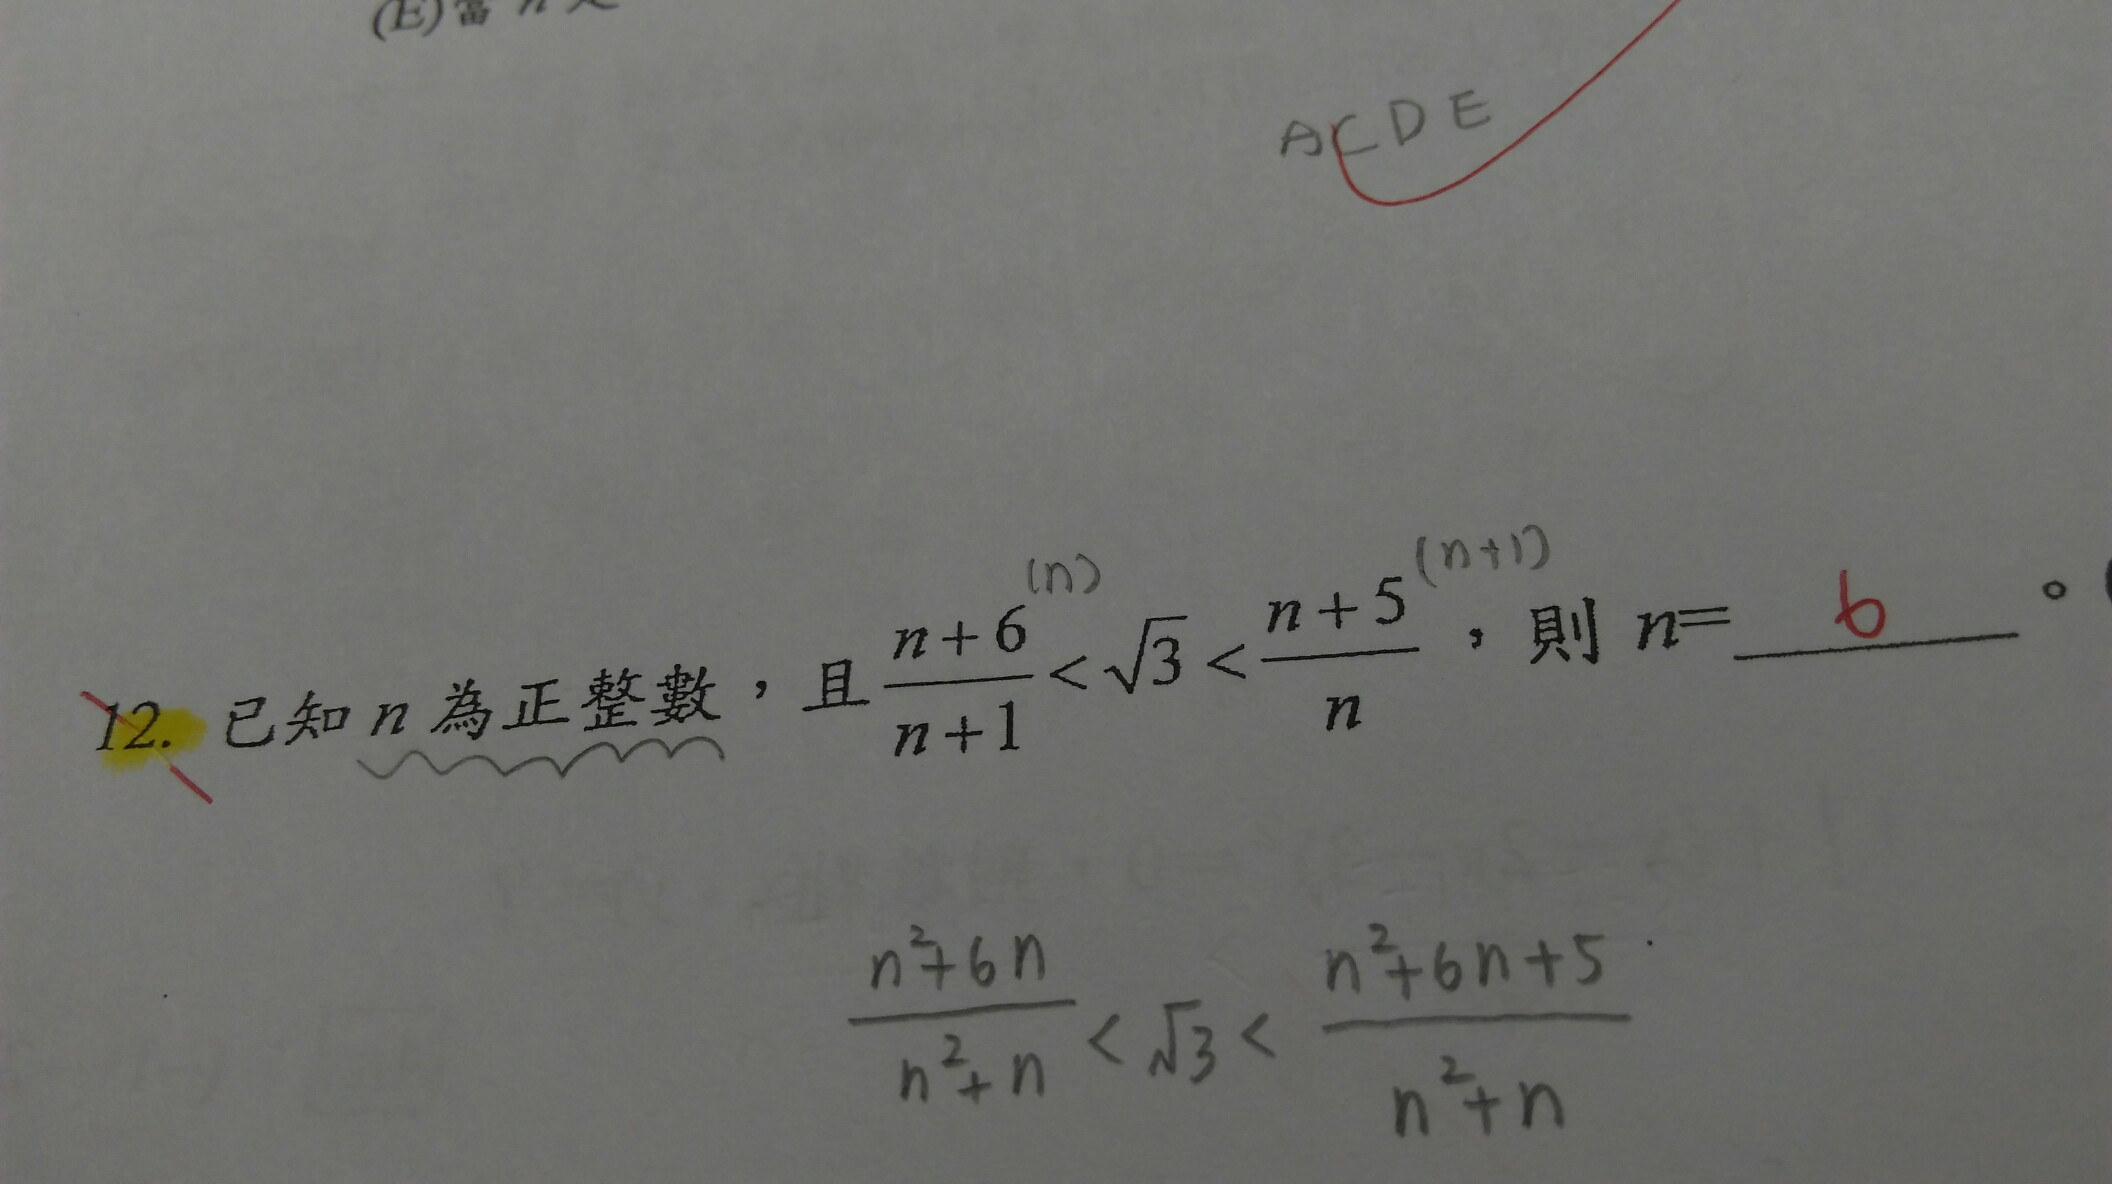 (E)當 n 是
ACDE
12. 已知 n 為正整數，且 \frac{n+6}{n+1}^{(n)} < √3 < \frac{n+5}{n}^{(n+1)}，則 n= 6 。
\frac{n²+6n}{n²+n} < √3 < \frac{n²+6n+5}{n²+n}